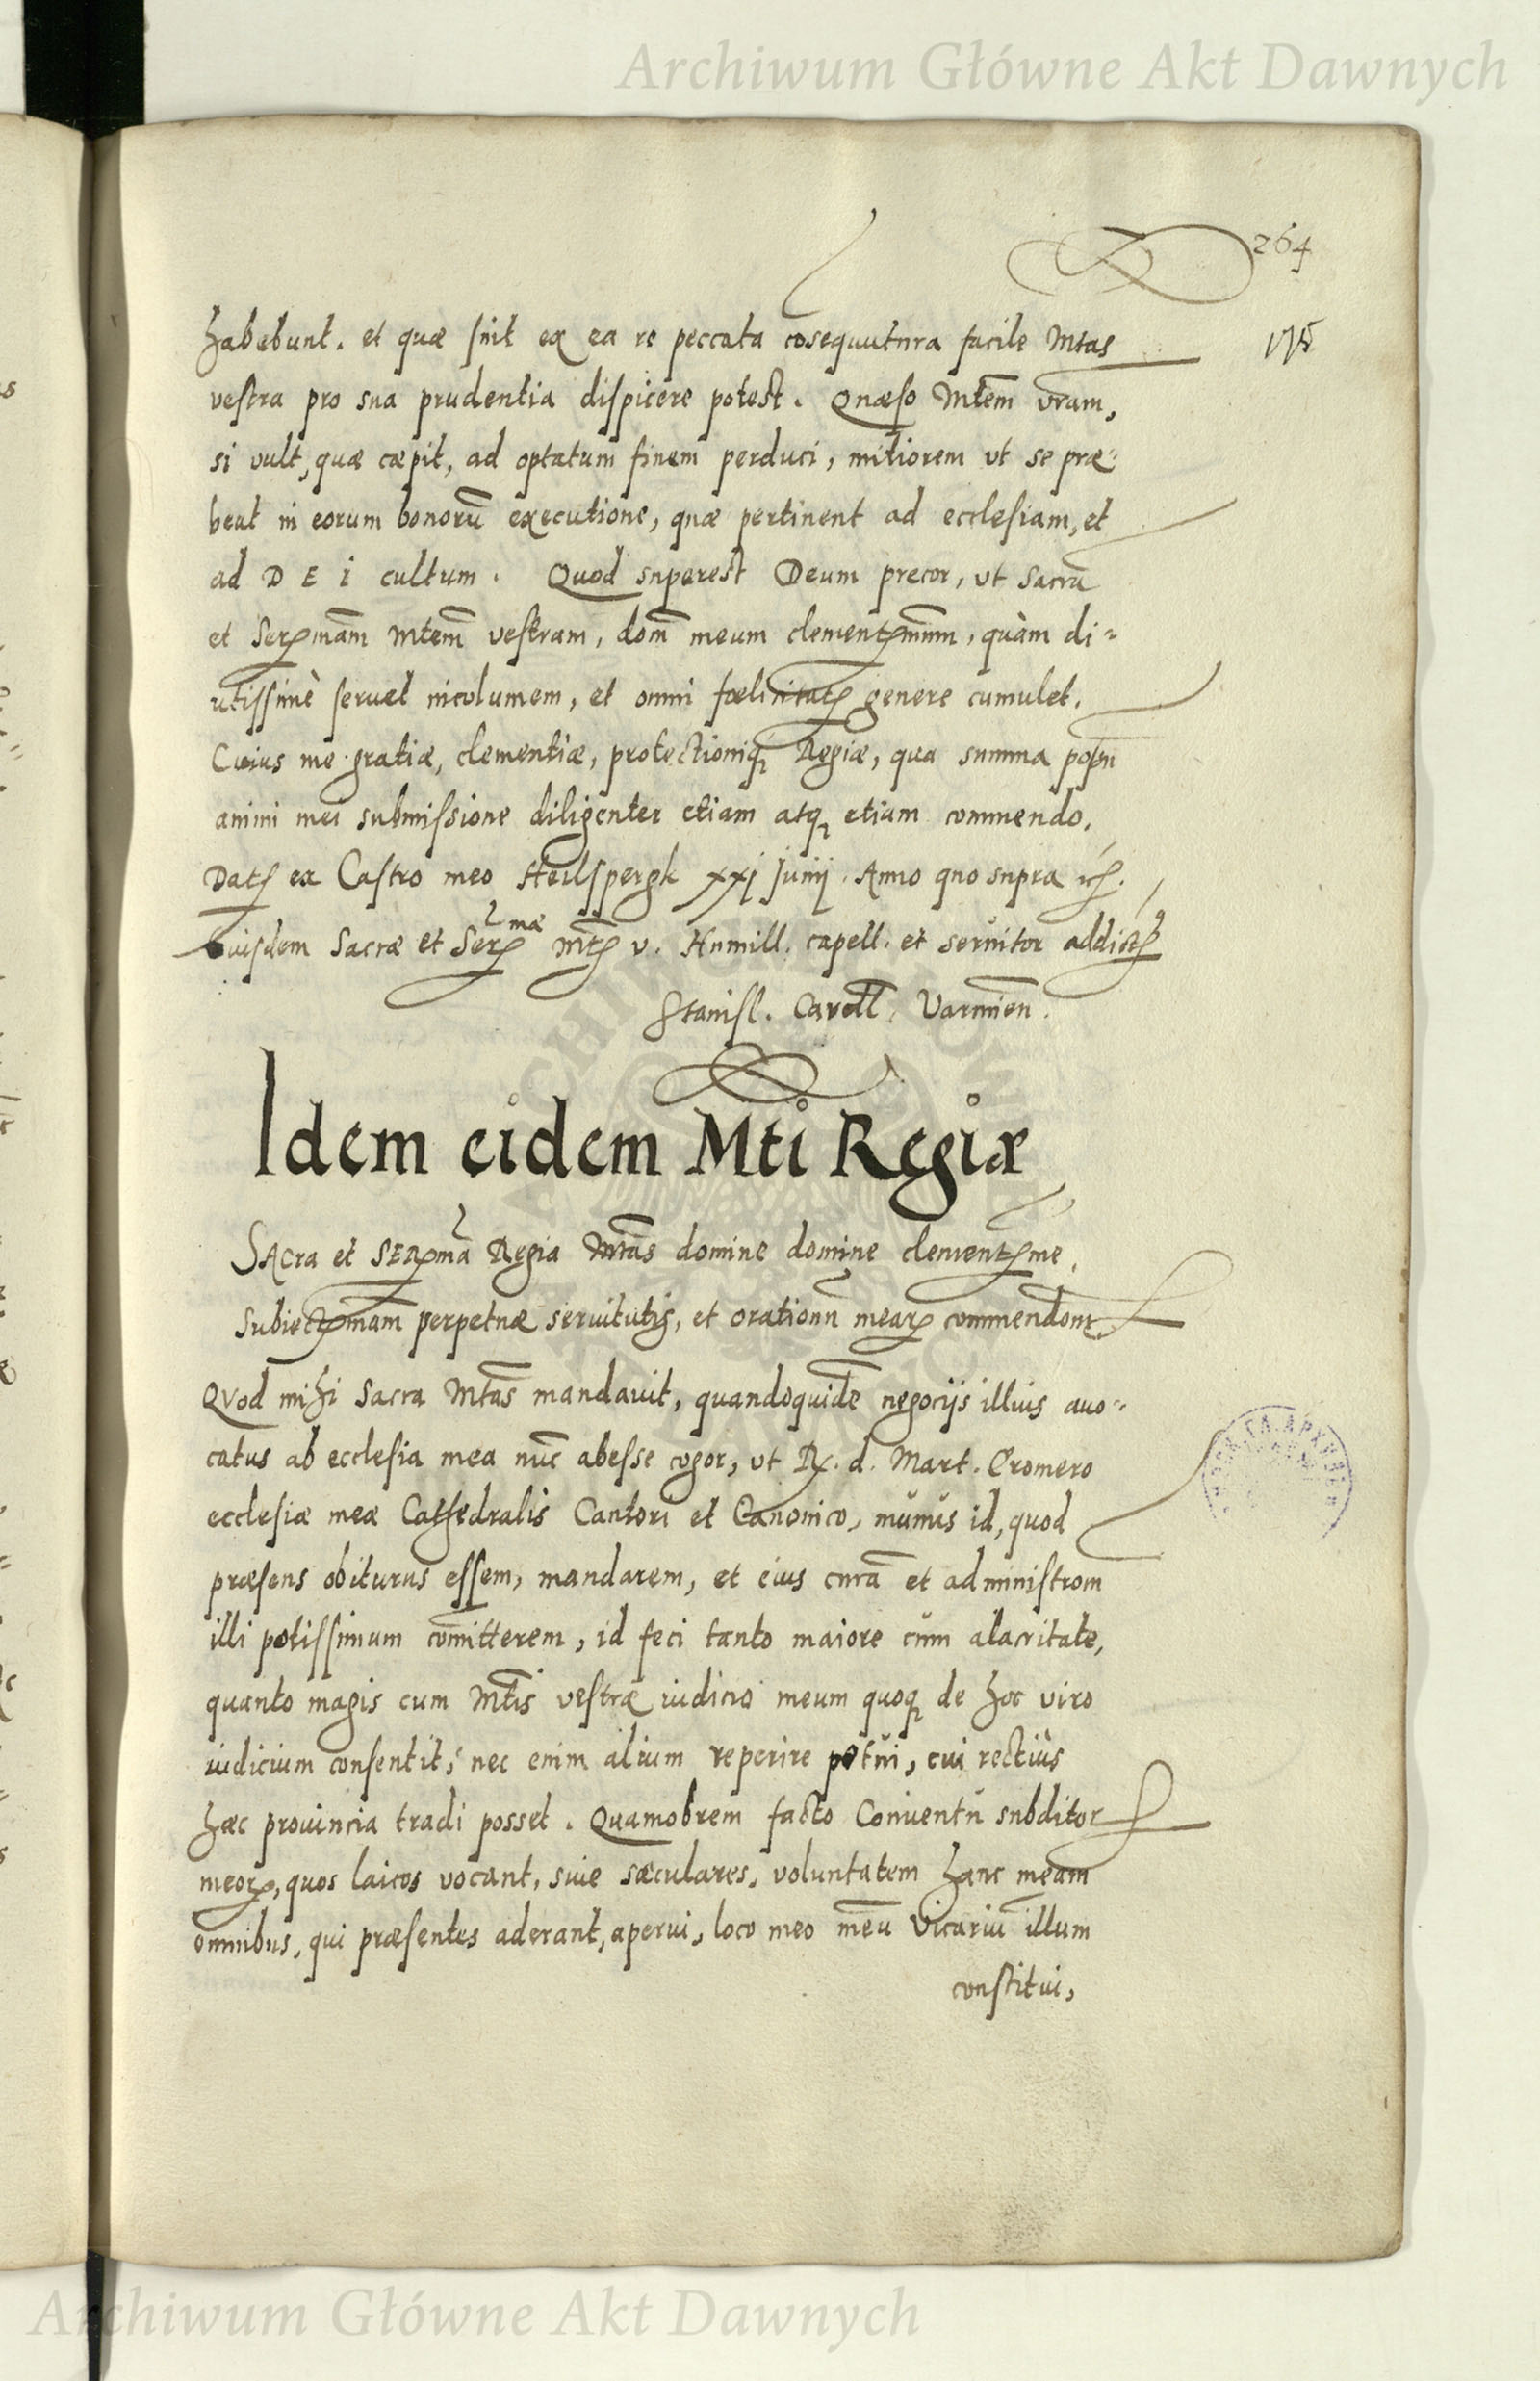 Archiwum Główne Akt Dawnych
264
habebunt. et quæ sint ex ea re peccata cōsequutura facile Mtas
vestra pro sua prudentia dispicere potest. Quæso Mtem̄ vrām,
si vult, quæ cæpit, ad optatum finem perduci, mitiorem vt se præ-
beat in eorum bonorū executione, quæ pertinent ad ecclesiam, et
ad DEI cultum. Quod superest Deum precor, ut Sacrā
et Serꝫmām Mtem̄ vestram, dom̄ meum clementꝫmum, quàm di-
utissimè seruet incolumem, et omni fœlicitatꝭ genere cumulet.
Cuius me gratiæ, clementiæ, protectioniqꝫ Regiæ, qua summa possū
animi mei submissione diligenter etiam atqꝫ etiam commendo.
Datꝭ ex Castro meo Heilspergk xxj Junij. Anno quo supra ꝛcꝭ.
Eiusdem Sacræ et Serꝫmæ Mtꝭ v. Humill. capell. et seruitor addictꝭ
Stanisl. Cardl. Varmien.
Idem eidem Mti Regiæ
SAcra et SERꝫmā Regia Mtās domine domine clementꝫme.
Subiectꝫmām perpetuæ seruitutis, et orationū mearꝫ commendōnē
QVod mihi Sacra Mtās mandauit, quandoquidē negocijs illius auo-
catus ab ecclesia mea nūc abesse cogor, ut Rꝫ. d. Mart. Cromero
ecclesiæ meæ Cathedralis Cantori et Canonico, munus id, quod
præsens obiturus essem, mandarem, et eius curā et administrōm
illi potissimum cōmitterem, id feci tanto maiore cum alacritate,
quanto magis cum Mtīs vestræ iudicio meum quoqꝫ de hoc viro
iudicium consentit; nec enim alium reperire potui, cui rectius
hæc prouincia tradi posset. Quamobrem facto Conuentu subditorꝫ
meorꝫ, quos laicos vocant, siue sæculares, voluntatem hanc meam
omnibus, qui præsentes aderant, aperui, loco meo meū Vicariū illum
constitui,
Archiwum Główne Akt Dawnych